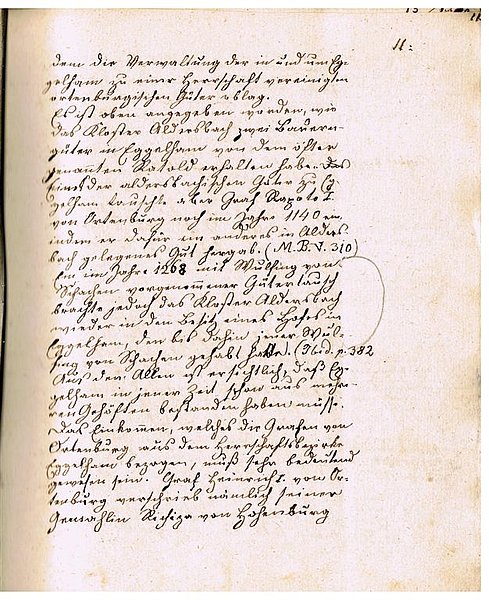 11.
dem die Verwaltung der in und um Eg-
gelham zu einer Herrschaft vereinigten
ortenburgischen Güter oblag.
Es ist oben angegeben worden, wie
das Kloster Aldersbach zwei Bauern-
güter in Eggelham von dem öfter
genannten Ratold erhalten habe. Das
eine der aldersbachischen Güter zu Eg-
gelham tauschte aber Graf Rapoto I.
von Ortenburg noch im Jahre 1140 ein,
indem er dafür ein anderes in Alders-
bach gelegenes Gut hergab. (M.B.V. 310)
Ein im Jahre 1268 mit Wulfing von
Schachen vorgenommener Gütertausch
brachte jedoch das Kloster Aldersbach
wieder in den Besitz eines Hofes in
Eggelham, den bis dahin jener Wul-
fing von Schachen gehabt hatte. (Ibid. p. 382
Aus dem Allen ist ersichtlich, daß Eg-
gelham in jener Zeit schon aus mehre-
ren Gehöften bestanden haben müsse.
Das Einkommen, welches die Grafen von
Ortenburg aus dem Herrschaftsbezirke
Eggelham bezogen, muß sehr bedeutend
gewesen sein. Graf Heinrich I. von Or-
tenburg verschrieb nämlich seiner
Gemahlin Richiza von Hohenburg